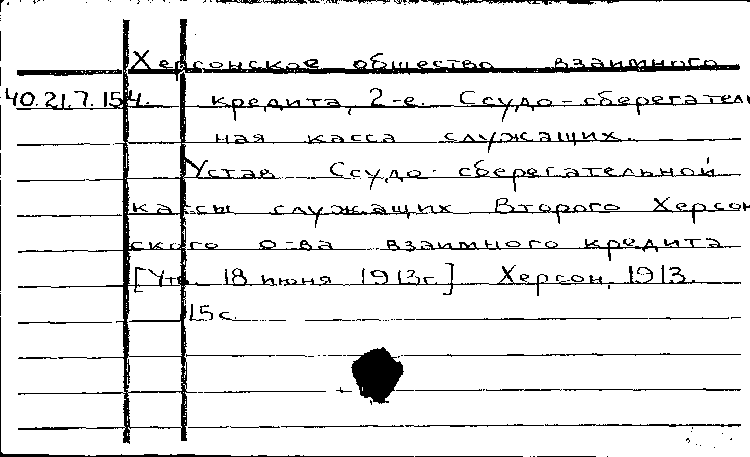 Херсонское общество взаимного
40.21.7.154. кредита, 2-е. Ссудо-сберегатель
ная касса служащих.
Устав Ссудо-сберегательной
кассы служащих Второго Херсон
ского о-ва взаимного кредита
[Утв. 18 июня 1913г.] Херсон, 1913.
15с.